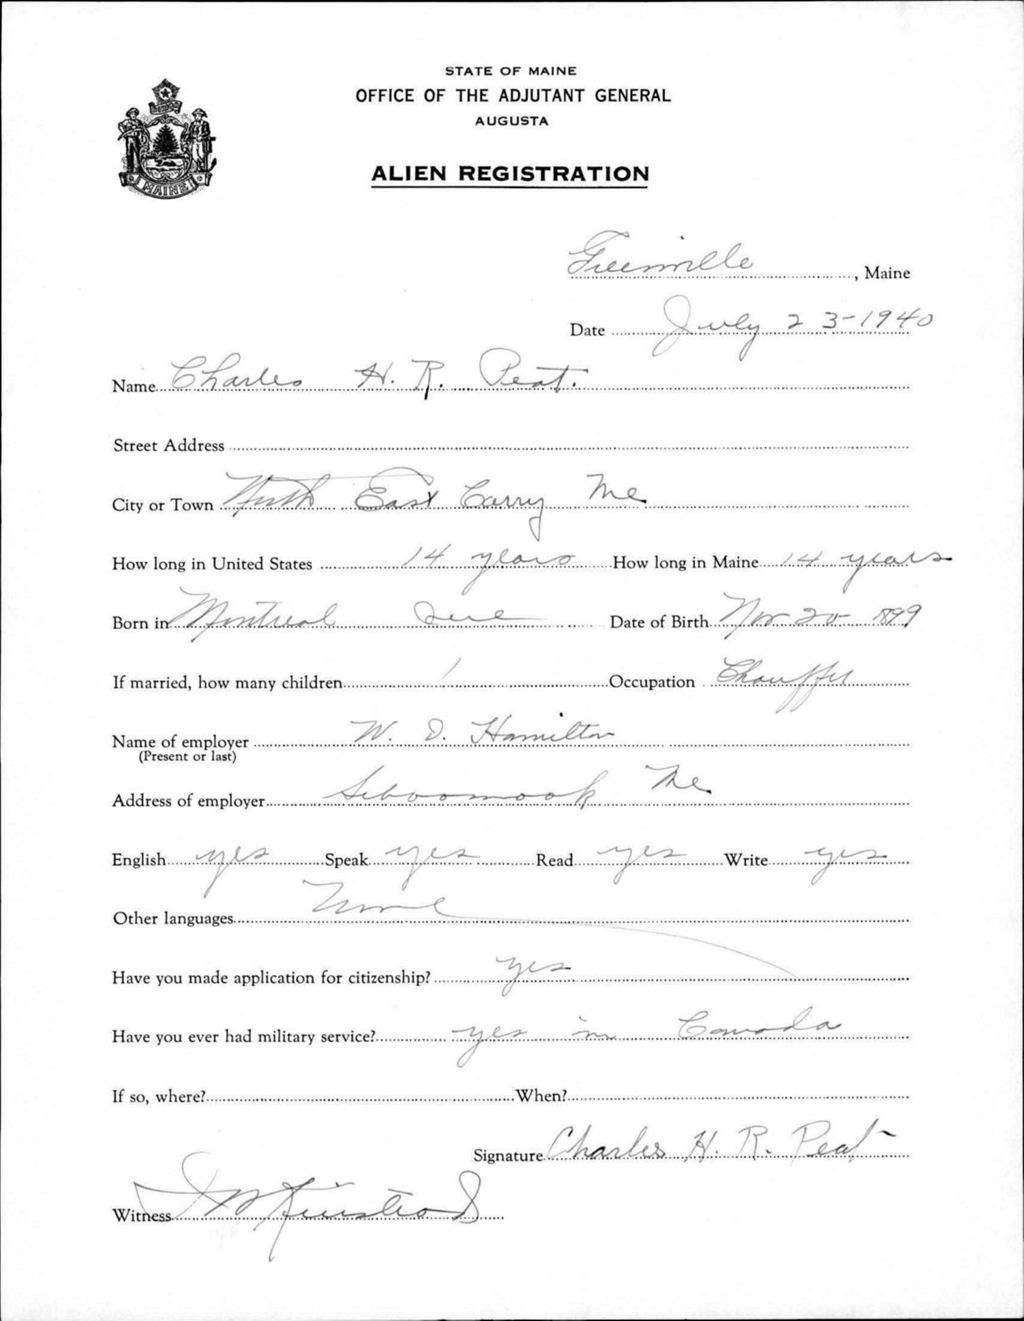 STATE OF MAINE
OFFICE OF THE ADJUTANT GENERAL
AUGUSTA
ALIEN REGISTRATION
MAINE
Greenville, Maine
Date July 23-1940
Name Charles H. R. Peat.
Street Address
City or Town North East Carry Me
How long in United States 14 years How long in Maine 14 years
Born in Montreal Que Date of Birth Nov 20 1899
If married, how many children 1 Occupation Chauffer
Name of employer W. D. Hamilton
(Present or last)
Address of employer Seboomook Me.
English yes Speak yes Read yes Write yes
Other languages None
Have you made application for citizenship? yes
Have you ever had military service? yes in Canada
If so, where? When?
Signature Charles H. R. Peat
Witness